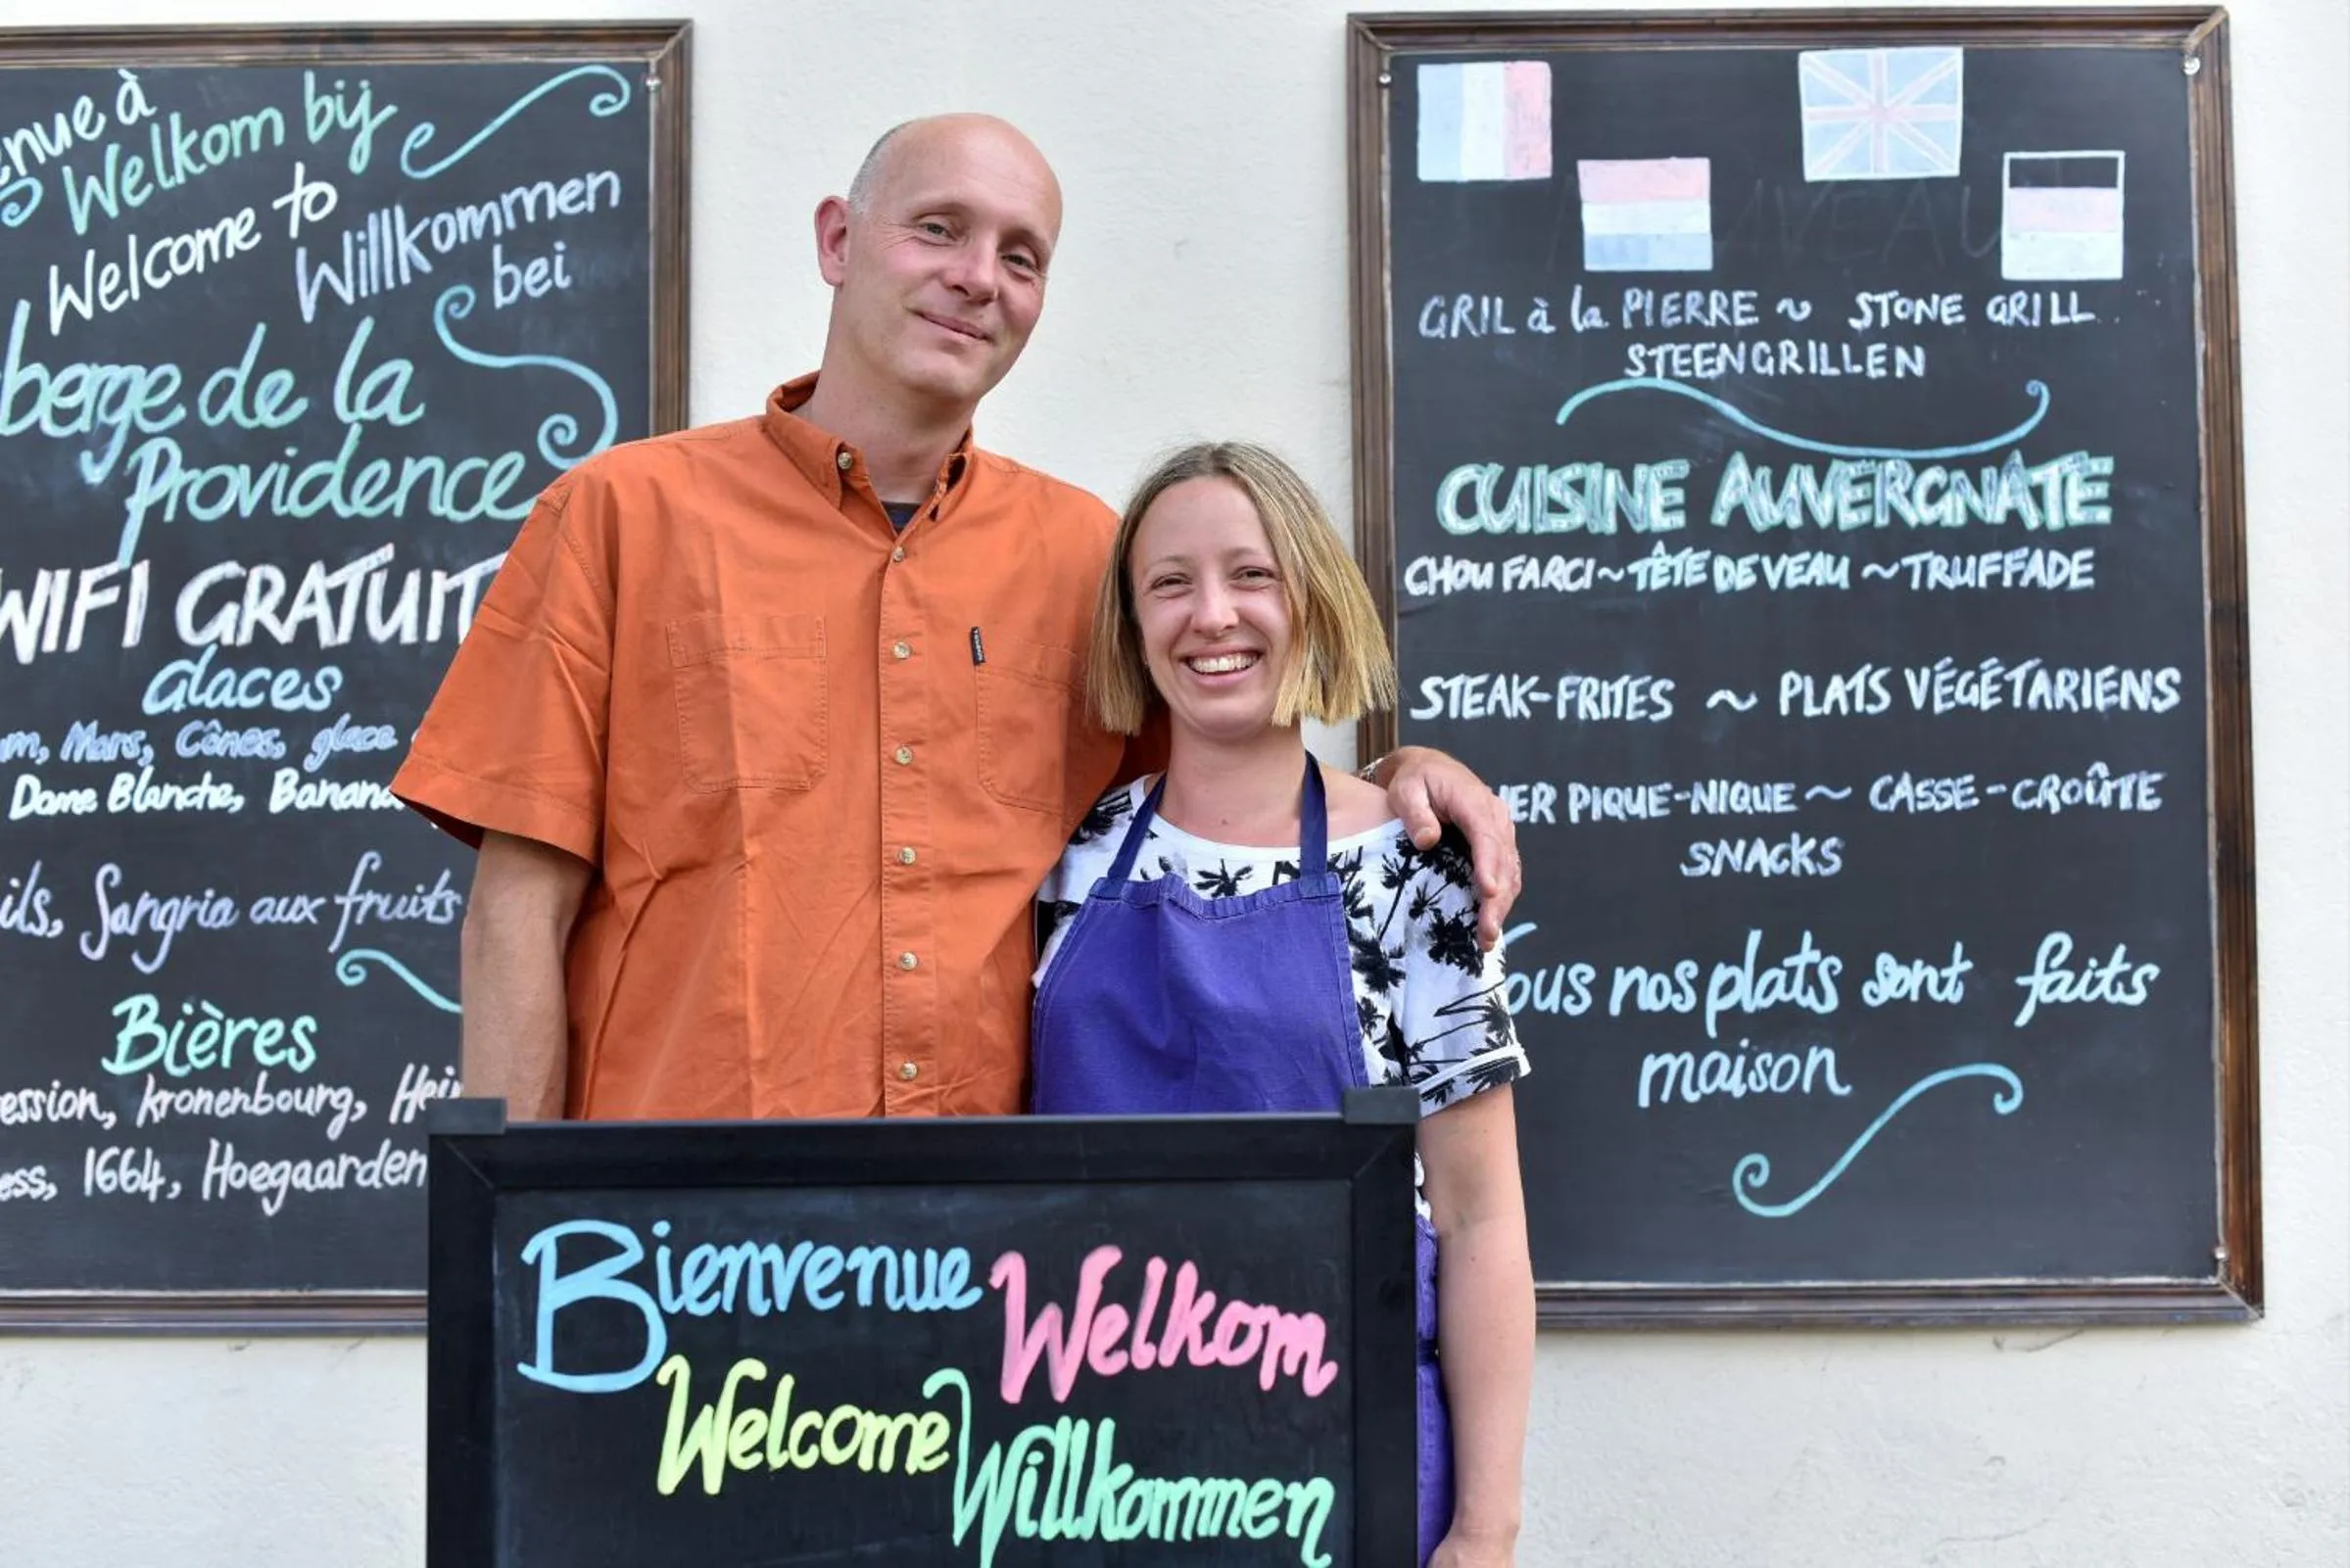 Welkom bij
Welcome to
Willkommen
bei
de la
Providence
WIFI GRATUIT
Glaces
Mars, Cônes, glace
Dame Blanche,
Sangria aux fruits
Bières
kronenbourg,
1664, Hoegaarden
GRIL à la PIERRE ~ STONE GRILL
STEENGRILLEN
CUISINE AUVERGNATE
CHOU FARCI ~ TÊTE DE VEAU ~ TRUFFADE
STEAK-FRITES ~ PLATS VÉGÉTARIENS
PIQUE-NIQUE ~ CASSE-CROÛTE
SNACKS
nos plats sont faits
maison
Bienvenue
Welkom
Welcome
Willkommen